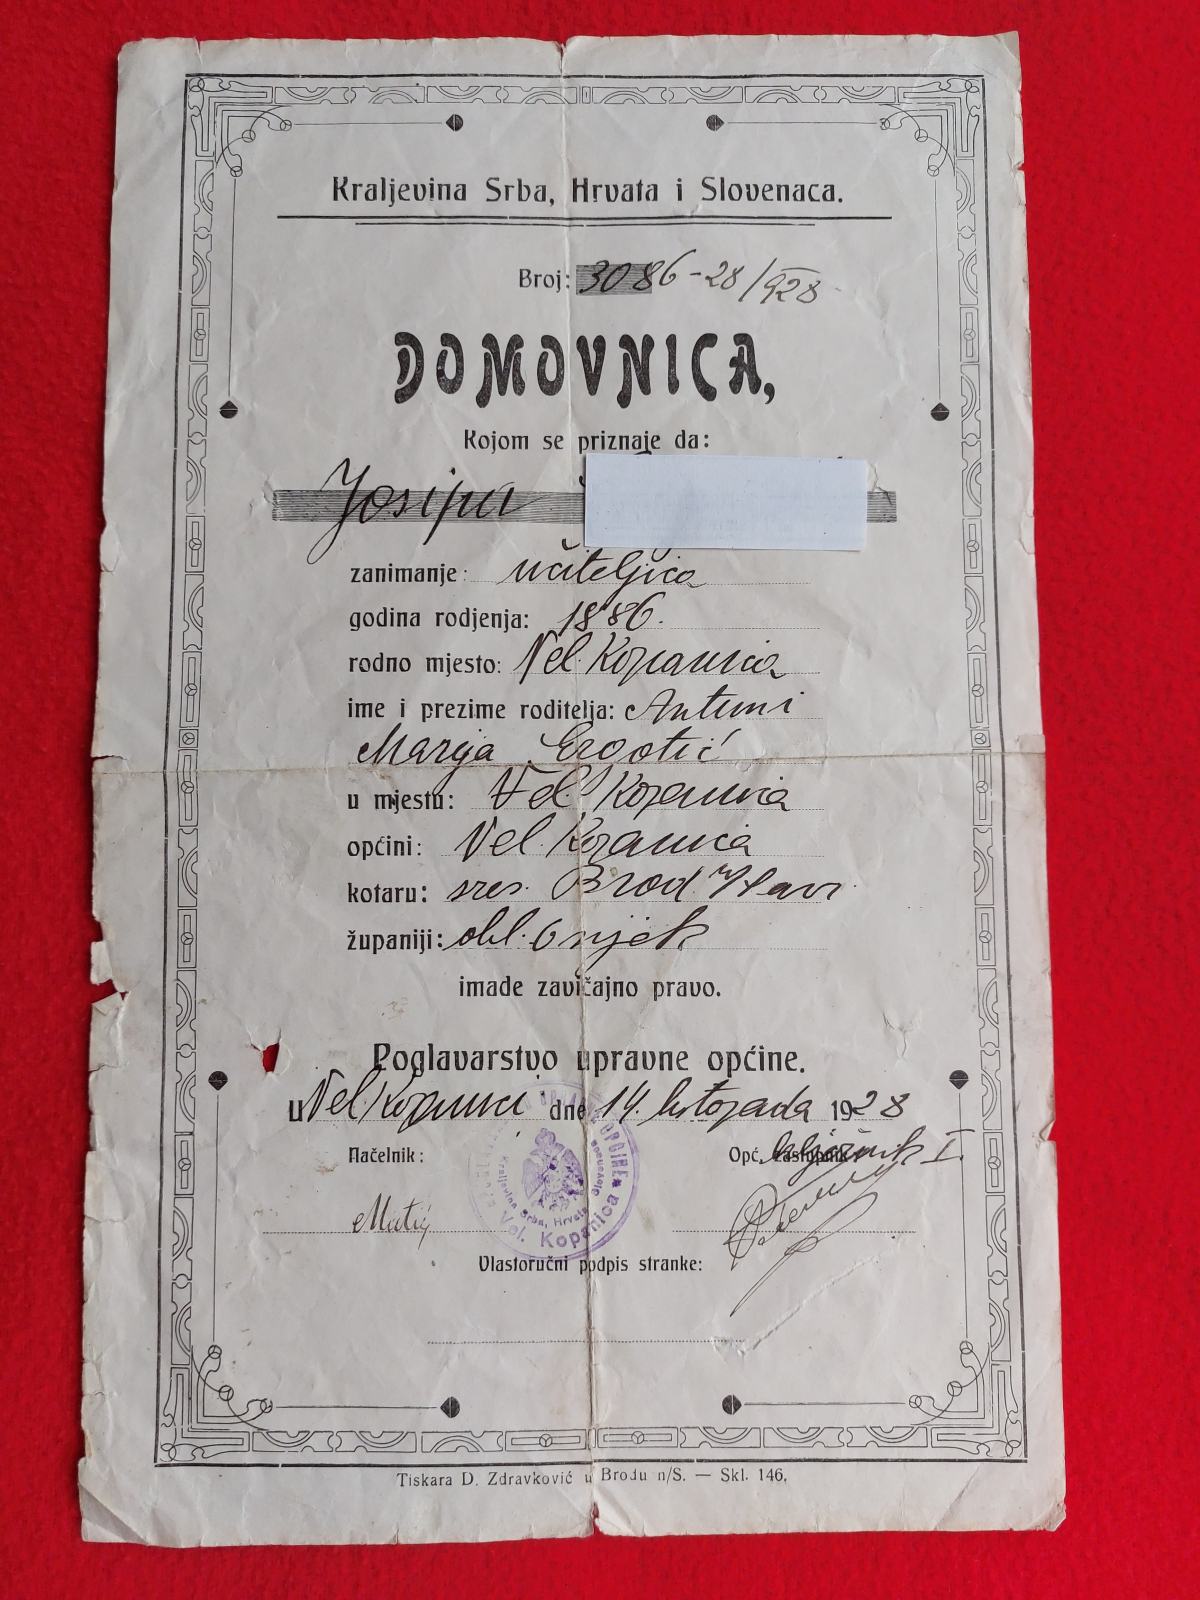 Kraljevina Srba, Hrvata i Slovenaca.
Broj: 3086-28/928
DOMOVNICA,
Kojom se priznaje da:
Josipa
zanimanje: učiteljica
godina rodjenja: 1886.
rodno mjesto: Vel. Kopanica
ime i prezime roditelja: Antun i
Marija Ergotić
u mjestu: Vel. Kopanica
općini: Vel. Kopanica
kotaru: srez. Brod n/Savi
županiji: obl. Osijek
imade zavičajno pravo.
Poglavarstvo upravne općine.
u Vel. Kopanici dne 14. listopada 1928
Načelnik: Opć. zastupnik: bilježnik I.
Matić
Kraljevina Srba, Hrvata Slovenaca
Vel. Kopanica
Vlastoručni podpis stranke:
Tiskara D. Zdravković u Brodu n/S. — Skl. 146.